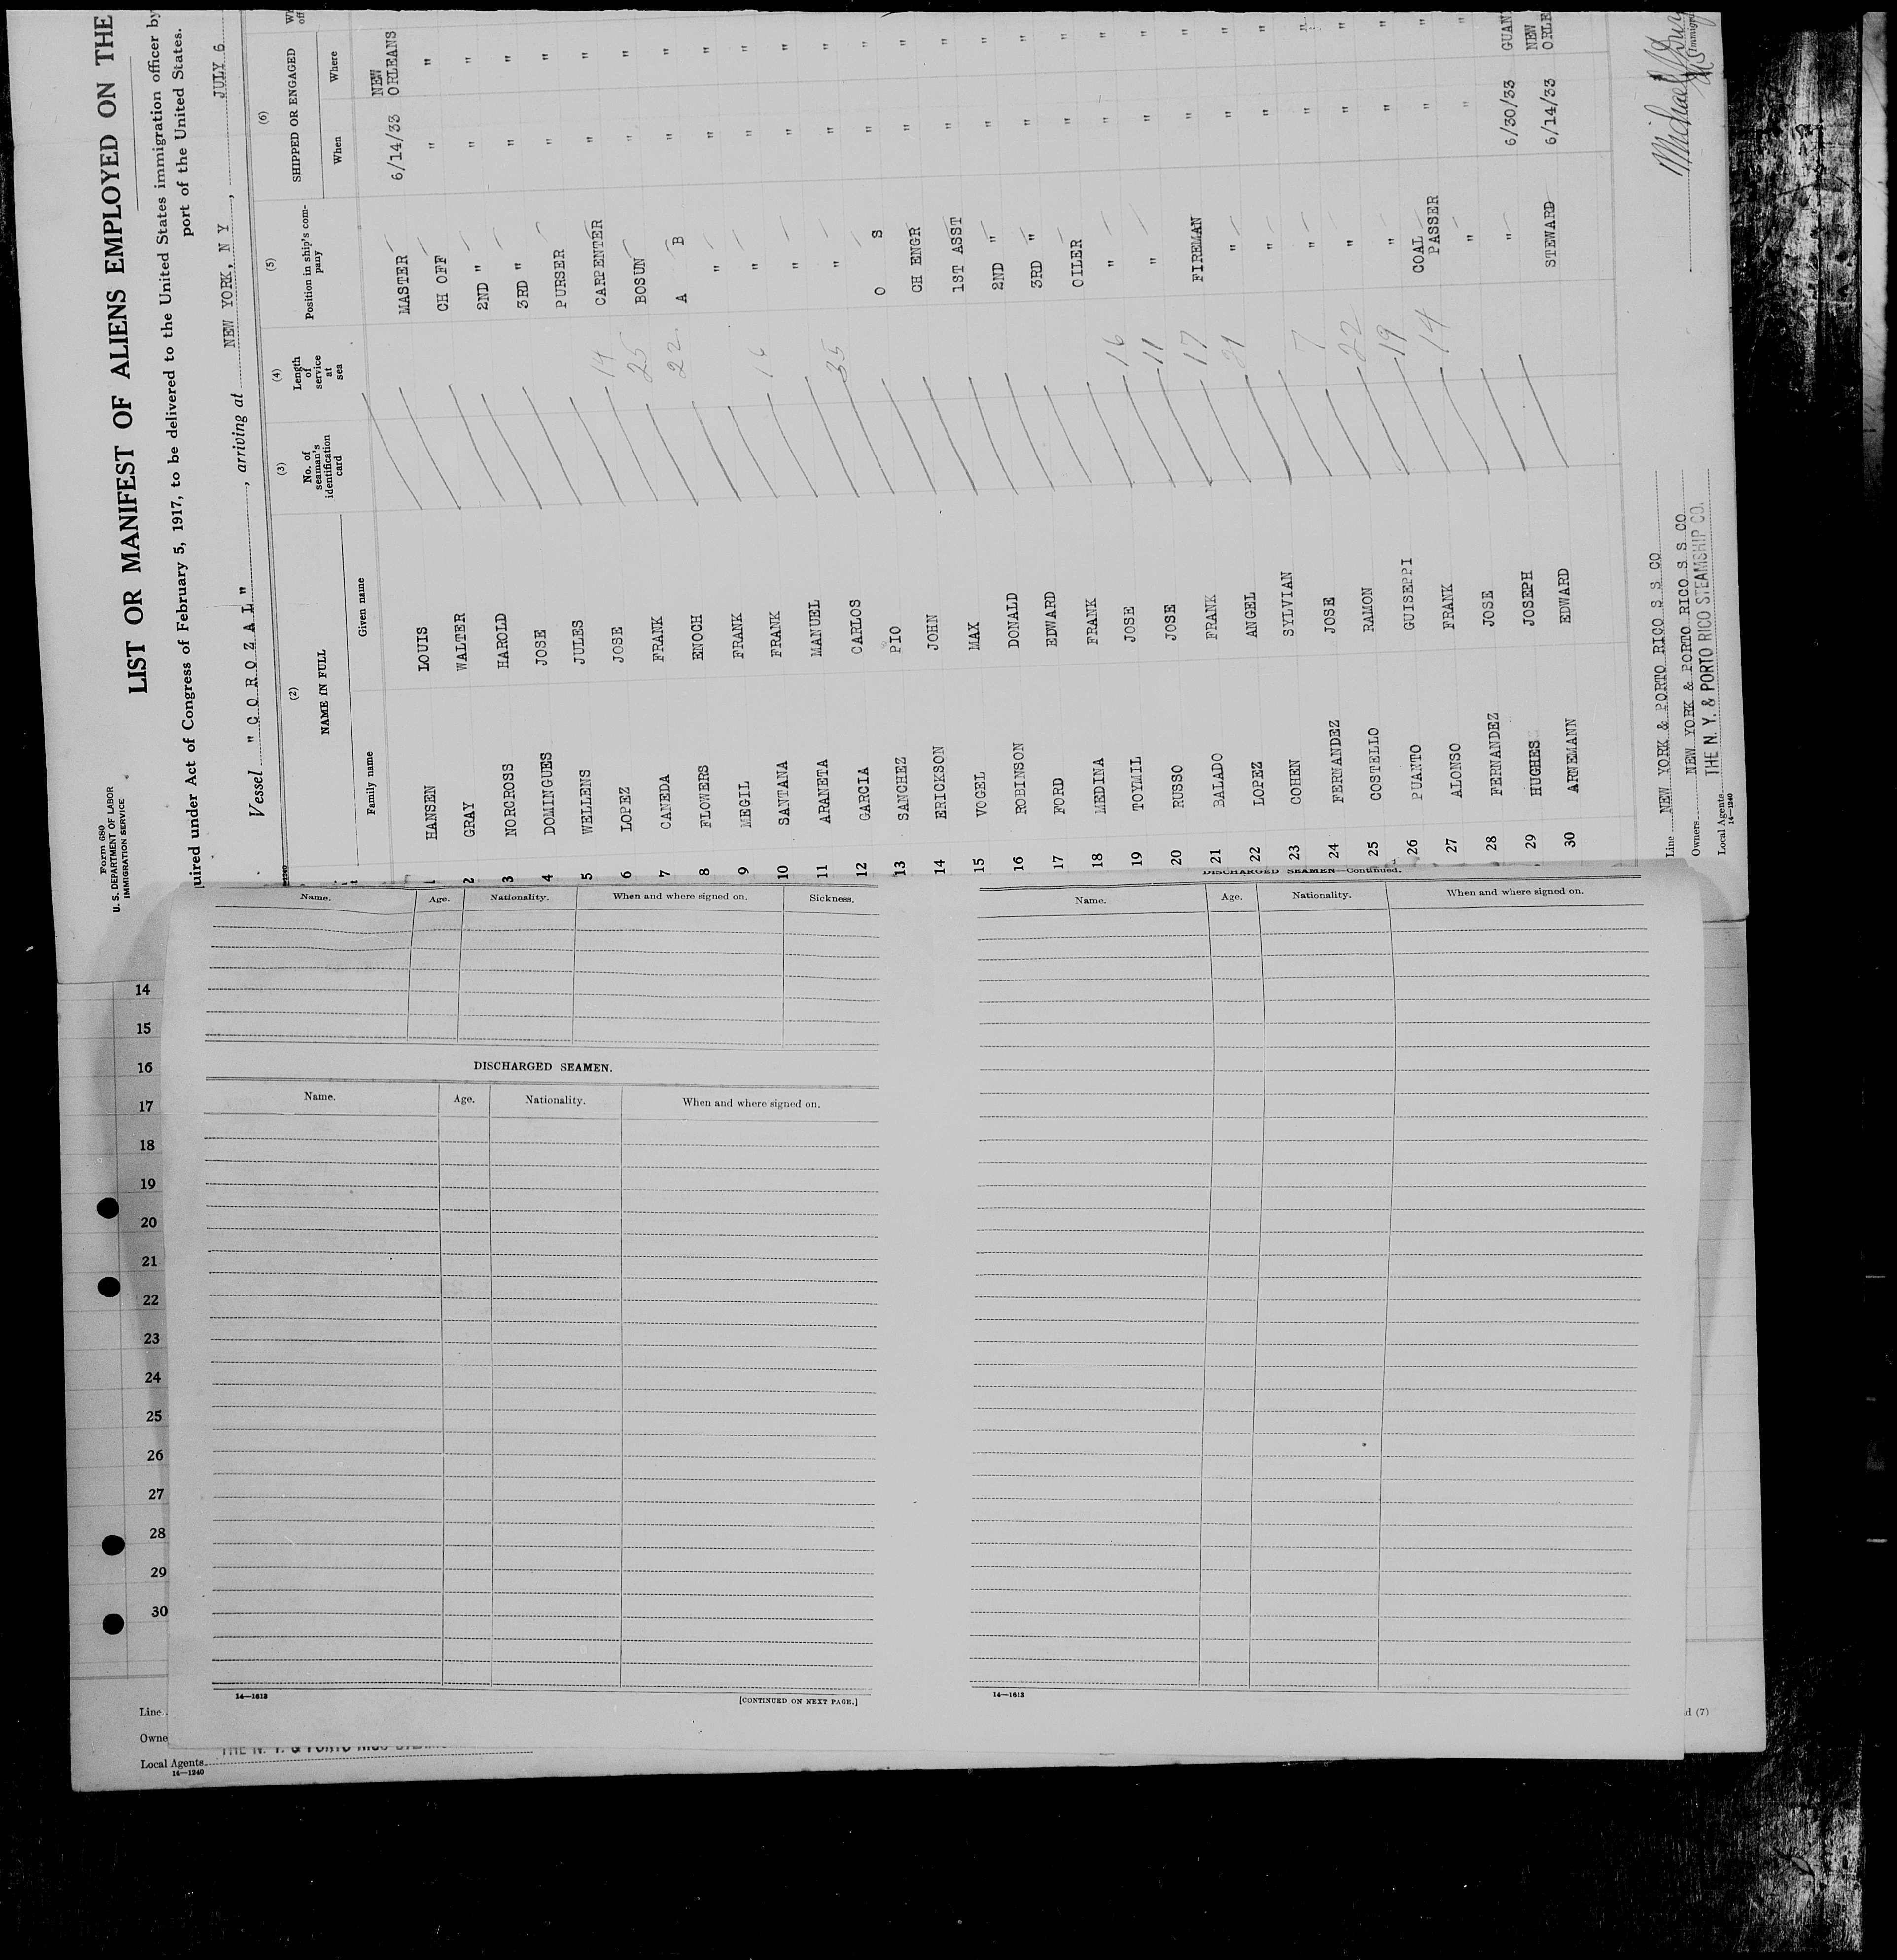 Form 680
U. S. DEPARTMENT OF LABOR
IMMIGRATION SERVICE
LIST OR MANIFEST OF ALIENS EMPLOYED ON THE
uired under Act of Congress of February 5, 1917, to be delivered to the United States immigration officer by
port of the United States.
Vessel " C O R O Z A L " , arriving at NEW YORK, N Y , JULY 6
(2) (3) (4) (5) (6)
NAME IN FULL No. of seaman's identification card Length of service at sea Position in ship's company SHIPPED OR ENGAGED
Family name Given name When Where
1 HANSEN LOUIS MASTER 6/14/33 NEW ORLEANS
2 GRAY WALTER CH OFF " "
3 NORCROSS HAROLD 2ND " " "
4 DOMINGUES JOSE 3RD " " "
5 WELLENS JULES PURSER " "
6 LOPEZ JOSE 14 CARPENTER " "
7 CANEDA FRANK 25 BOSUN " "
8 FLOWERS ENOCH 22 A B " "
9 MEGIL FRANK " " "
10 SANTANA FRANK 16 " " "
11 ARANETA MANUEL " " "
12 GARCIA CARLOS 35 " " "
13 SANCHEZ PIO O S " "
14 ERICKSON JOHN CH ENGR " "
15 VOGEL MAX 1ST ASST " "
16 ROBINSON DONALD 2ND " " "
17 FORD EDWARD 3RD " " "
18 MEDINA FRANK OILER " "
19 TOYMIL JOSE 16 " " "
20 RUSSO JOSE 11 " " "
21 BALADO FRANK 17 FIREMAN " "
22 LOPEZ ANGEL 21 " " "
23 COHEN SYLVIAN " " "
24 FERNANDEZ JOSE 7 " " "
25 COSTELLO RAMON 22 " " "
26 PUANTO GUISEPPI 19 " " "
27 ALONSO FRANK 14 COAL PASSER " "
28 FERNANDEZ JOSE " " "
29 HUGHES JOSEPH " 6/30/33 GUAN
30 ARNEMANN EDWARD STEWARD 6/14/33 NEW ORLE
Line NEW YORK & PORTO RICO S S CO
Owners NEW YORK & PORTO RICO S S CO
THE N. Y. & PORTO RICO STEAMSHIP CO.
Local Agents
14—1240
Name. Age. Nationality. When and where signed on. Sickness.
DISCHARGED SEAMEN.
Name. Age. Nationality. When and where signed on.
14—1613 [CONTINUED ON NEXT PAGE.]
DISCHARGED SEAMEN—Continued.
Name. Age. Nationality. When and where signed on.
14—1613
14
15
16
17
18
19
20
21
22
23
24
25
26
27
28
29
30
Line
Owne
THE N. Y. & PORTO RICO
Local Agents
14—1240
d (7)